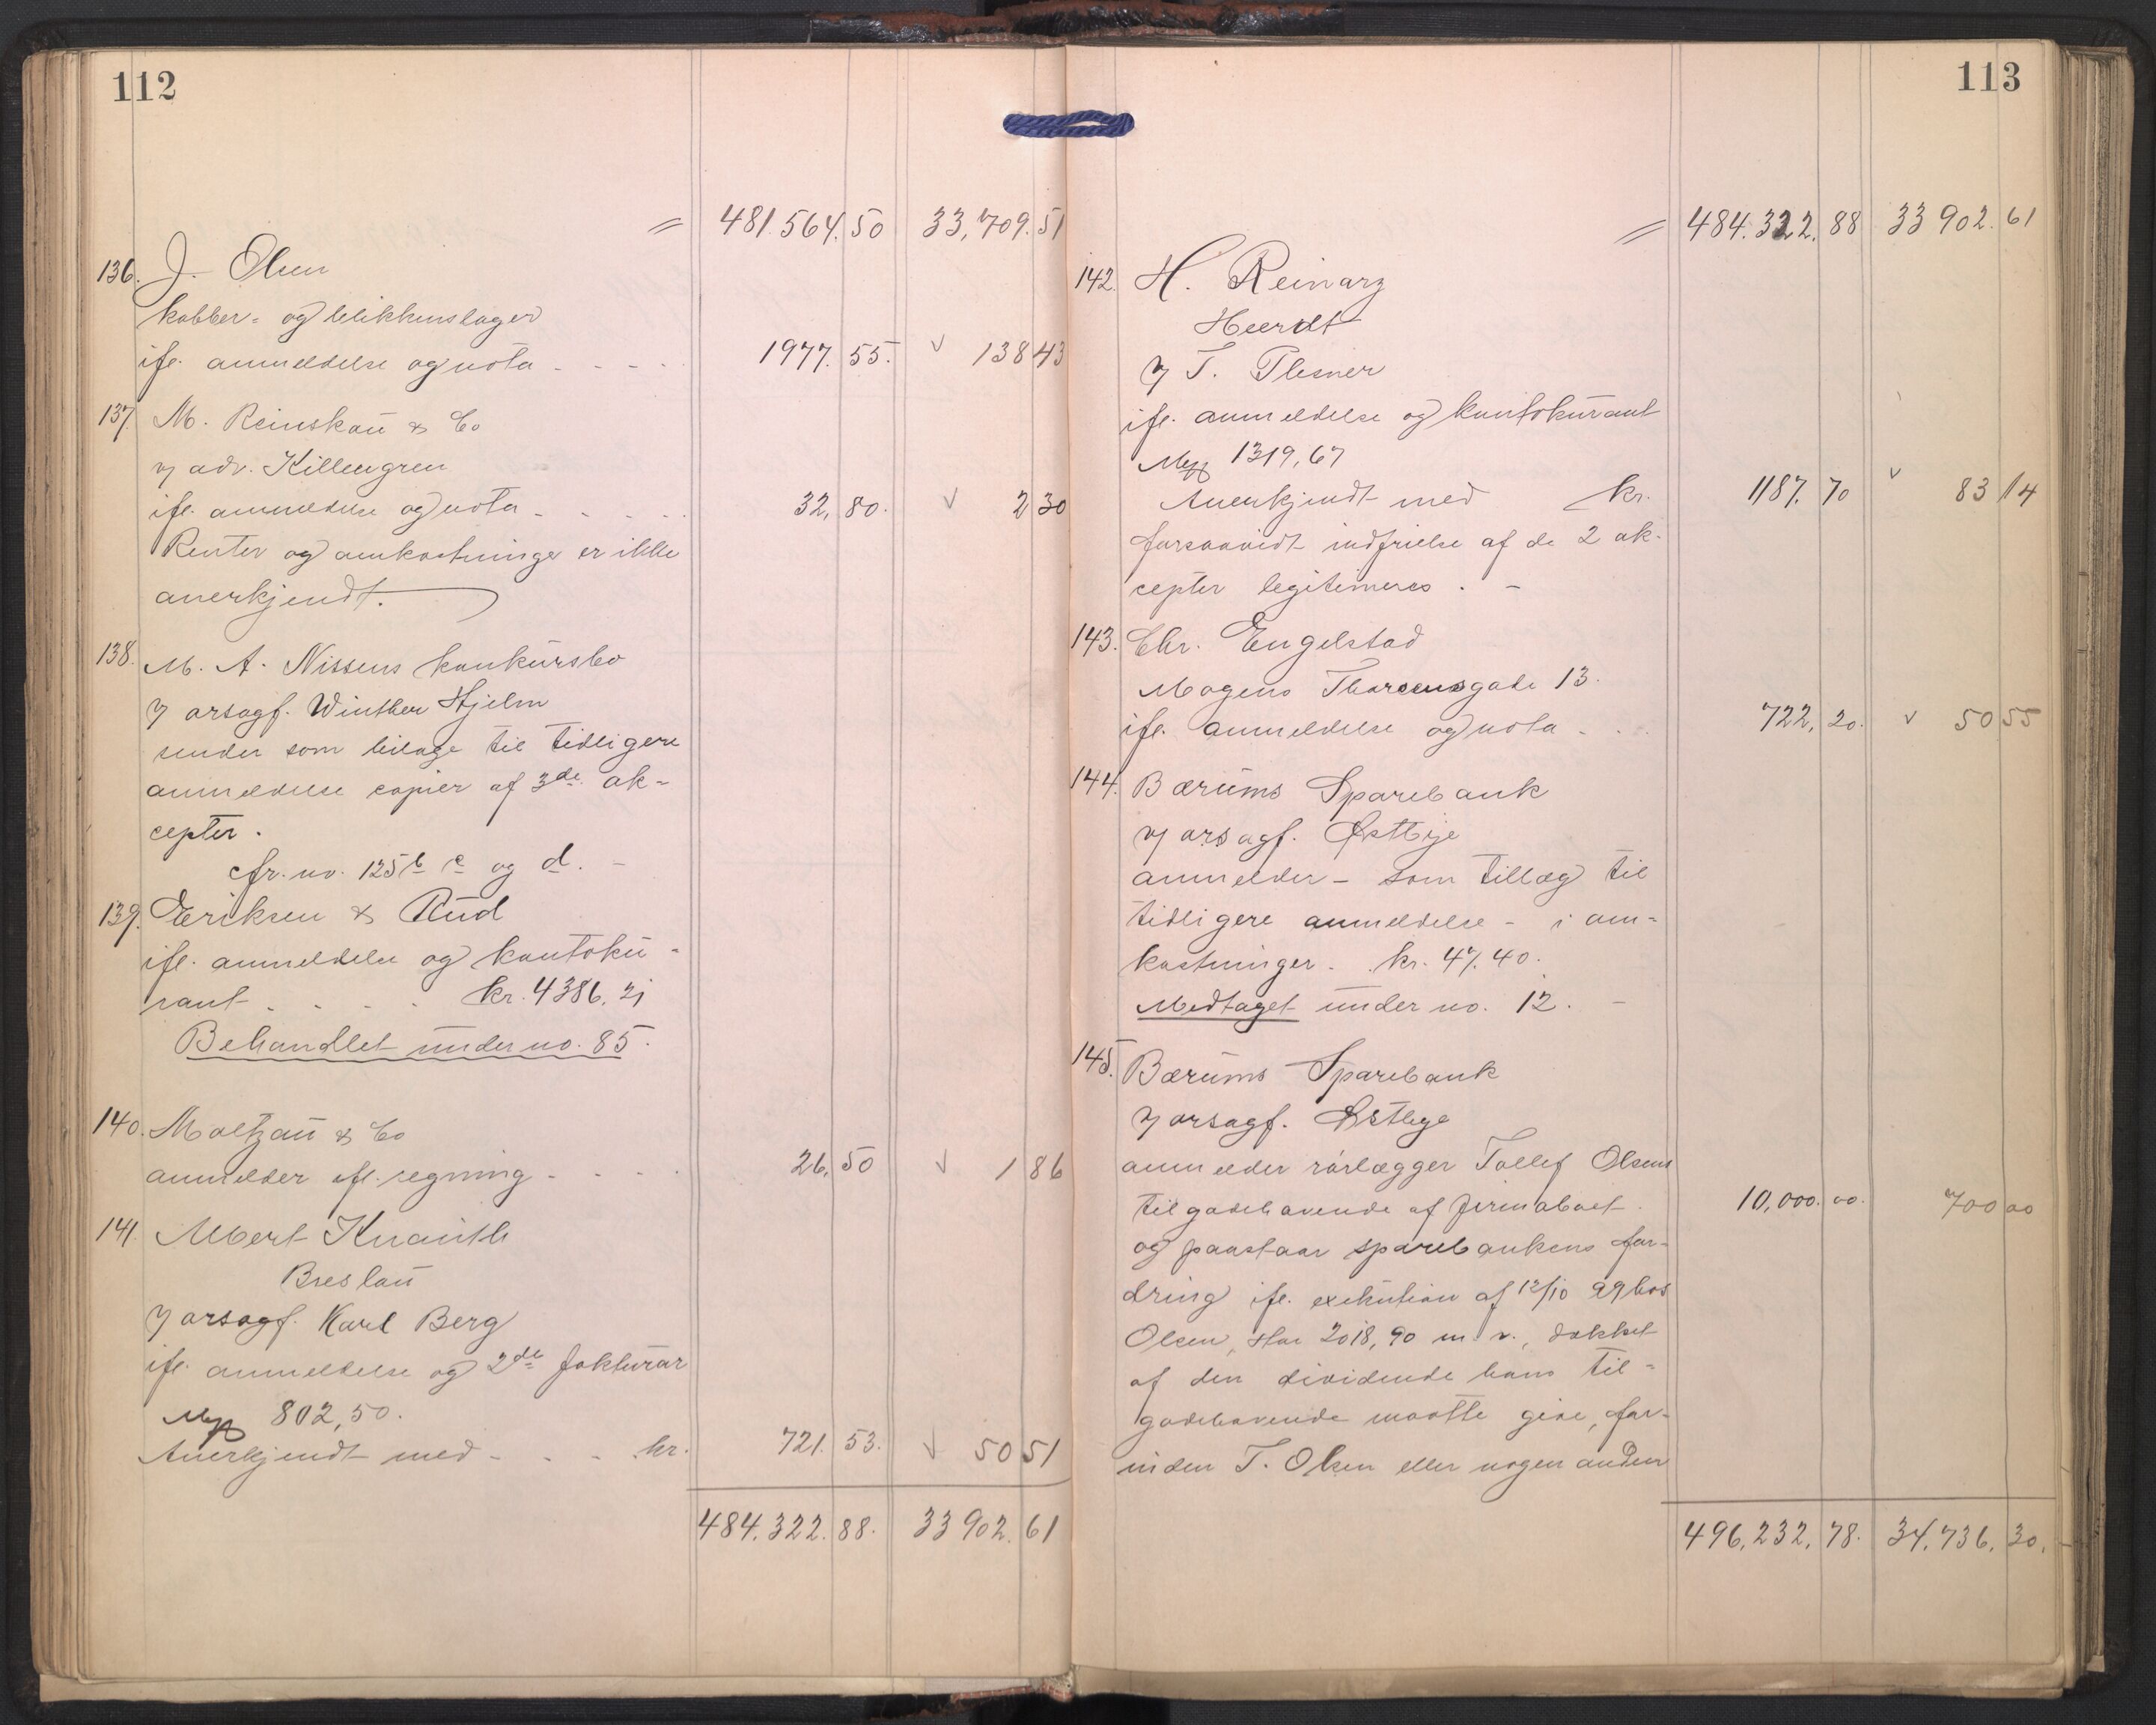 112
= 481.564.50 33,709.51
136. J. Olsen
kobber- og blikkenslager
ifl. anmeldelse og nota - - - - 1977.55. v 138 43
137. M. Reinskou & Co
v/ adv. Killengren
ifl. anmeldelse og nota - - - - 32,80. v 2 30
Renter og omkostninger er ikke
anerkjendt.
138. M. A. Nissens konkursbo
v/ orsagf. Winther Hjelm
sender som bilage til tidligere
anmeldelse copier af 3de ak-
cepter.
cfr. no. 125 b c og d. -
139. Eriksen & Rud
ifl. anmeldelse og kontoku-
rant - - - - kr. 4386.21
Behandlet under no. 85.
140. Moltzau & Co
anmelder ifl. regning - - - - 26,50 v 1 86
141. Albert Knauth
Breslau
v/ orsagf. Karl Berg
ifl. anmeldelse og 2de fakturar
Mk 802,50.
Anerkjendt med - - - kr. 721.53. v 50 51
484.322.88. 33902.61
113
= 484.322.88 33902.61
142. H. Reinarz
Heerdt
v/ T. Plesner
ifl. anmeldelse og kontokurant
Mk 1319,67
Anerkjendt med kr. 1187.70 v 83 14
forsaavidt indfrielse af de 2 ak-
cepter legitimeres. -
143. Chr. Engelstad
Mogens Thorsensgade 13.
ifl. anmeldelse og nota - - 722,20. v 50 55
144. Bærums Sparebank
v/ orsagf. Østbye
anmelder - som tillæg til
tidligere anmeldelse - i om-
kostninger - kr. 47.40.
Medtaget under no. 12. -
145. Bærums Sparebank
v/ orsagf. Østbye
anmelder rørlægger Tollef Olsens
tilgodehavende af firmaboet. 10,000.00. 700 00
og paastaar sparebankens for-
dring ifl. exekution af 12/10 99 hos
Olsen, stor 2018,90 m. v., dækket
af den dividende hans til-
godehavende maatte give, for-
inden T. Olsen eller nogen anden
496,232,78. 34,736,30.